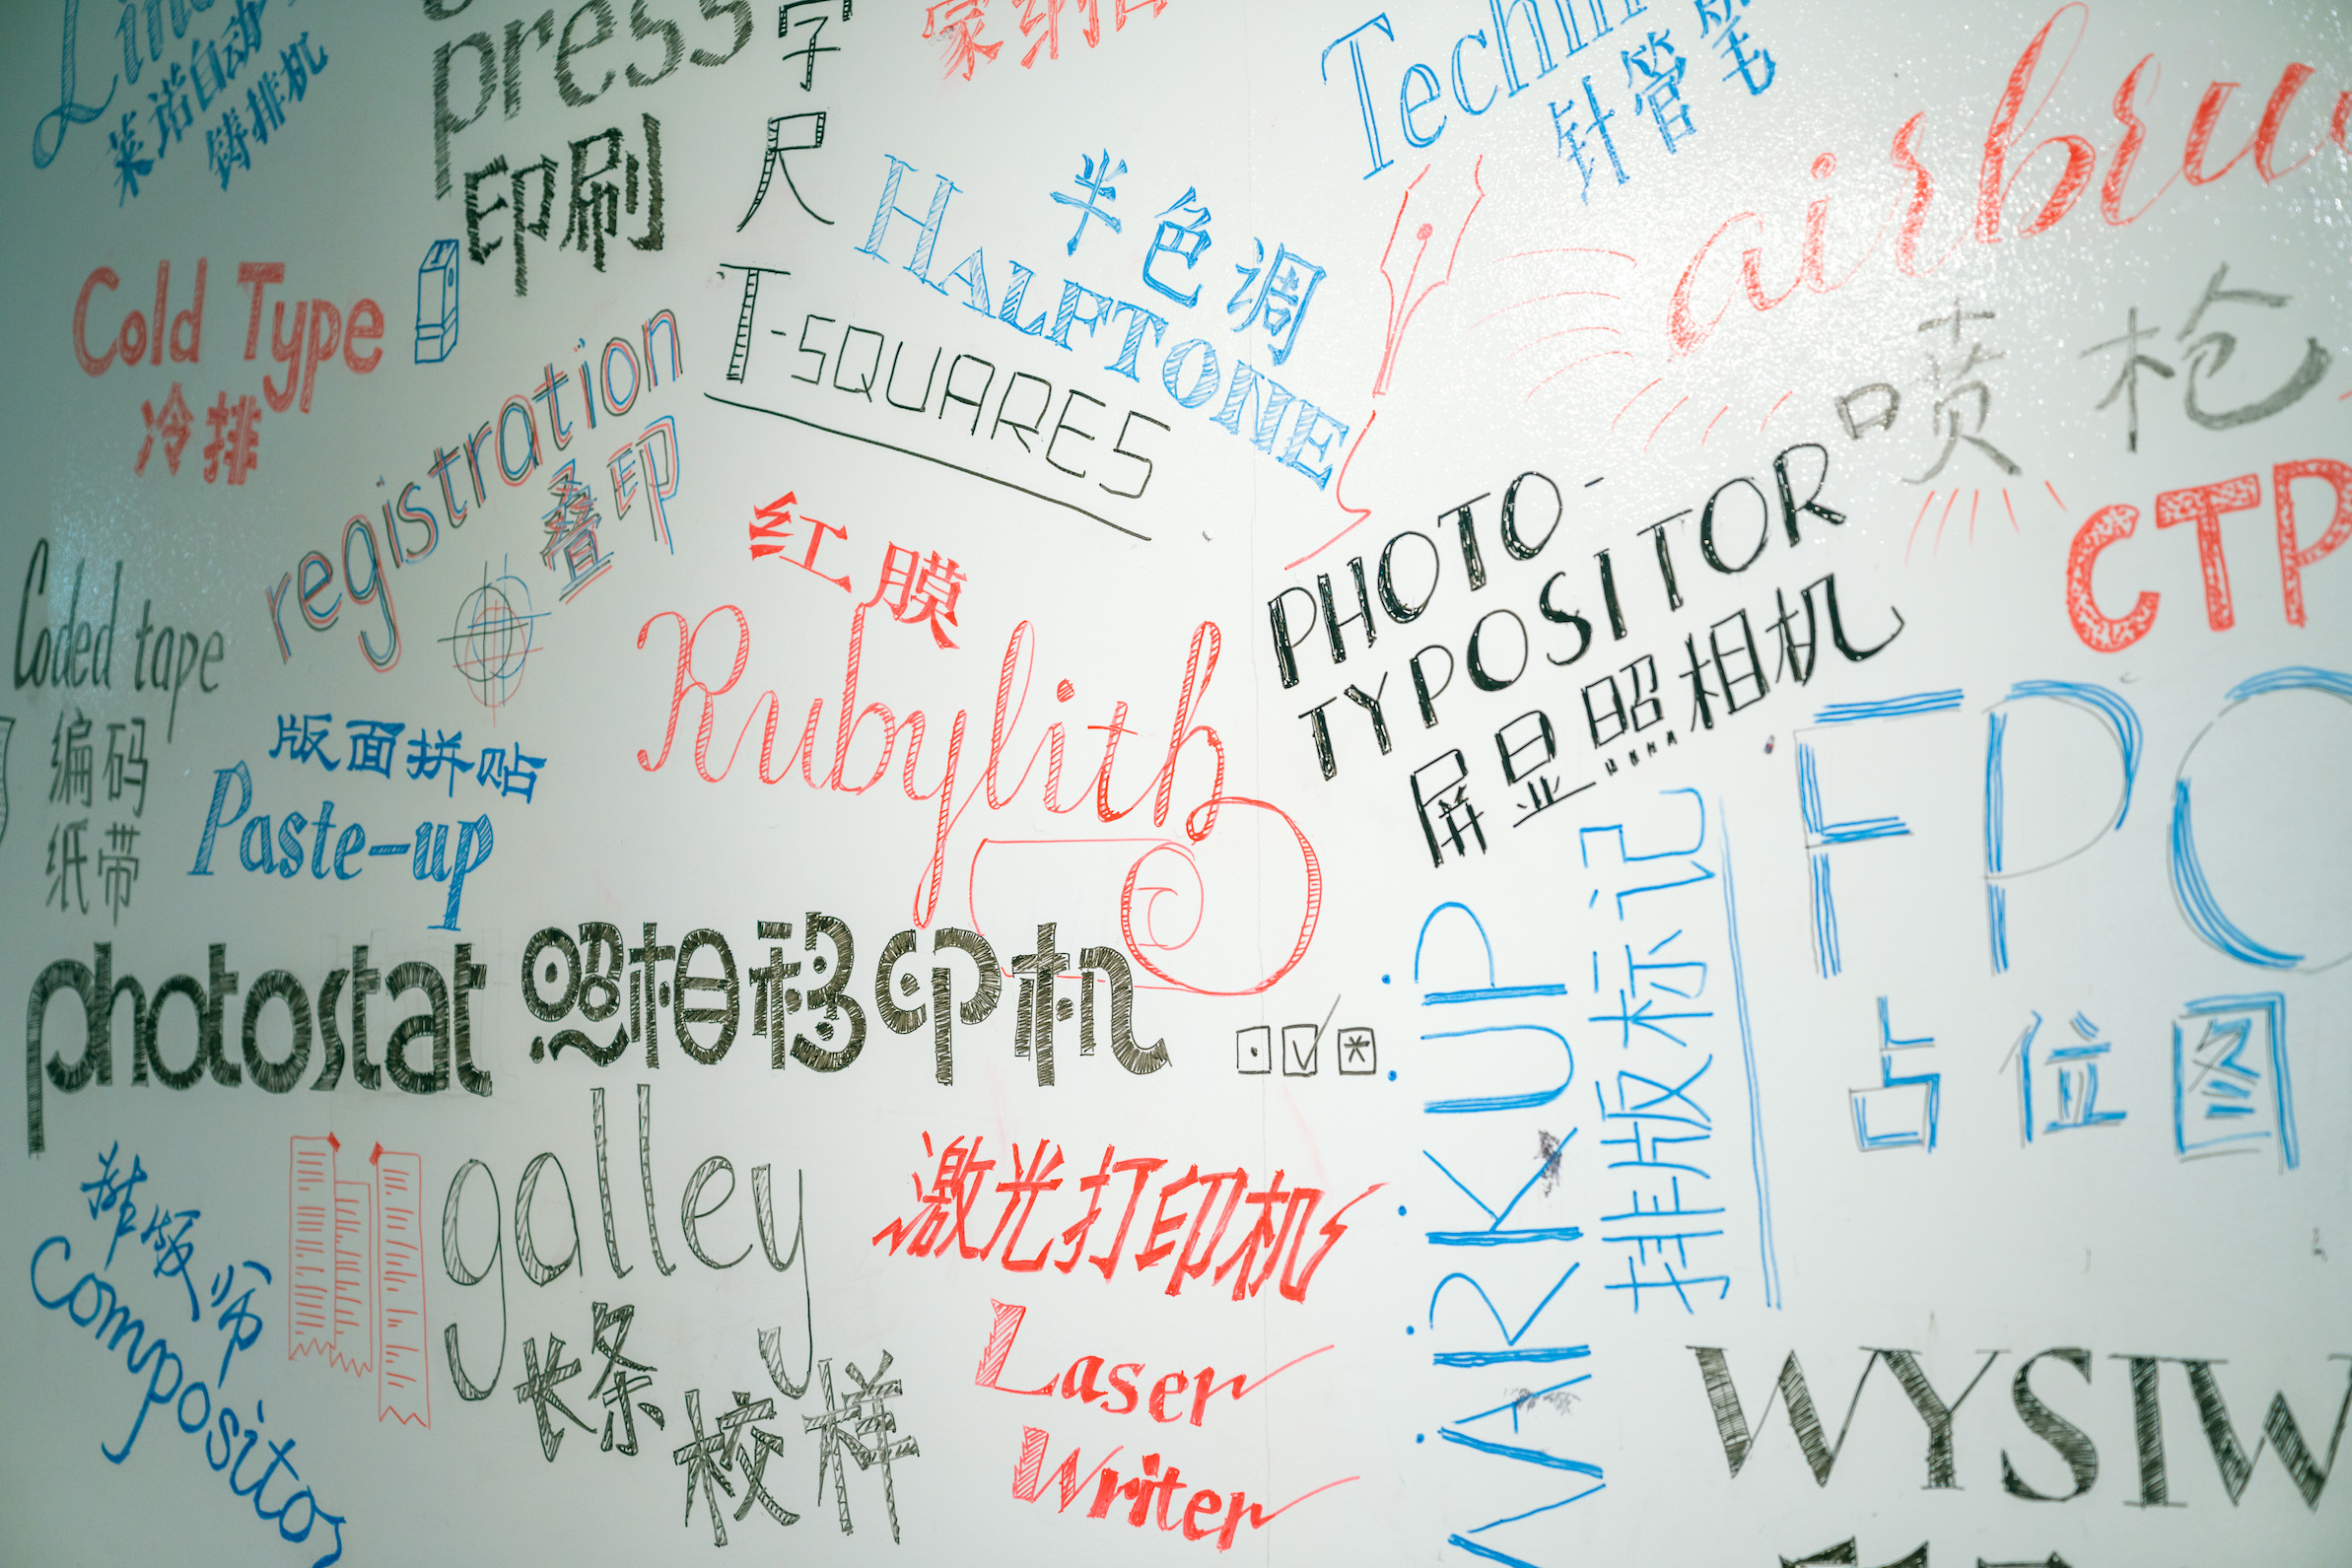 莱诺自动
铸排机
press
印刷
字
尺
T-SQUARES
半色调
HALFTONE
针管笔
喷枪
Cold Type
冷排
registration
叠印
红膜
Rubylith
PHOTO-
TYPOSITOR
屏显照相机
CTP
Coded tape
编码
纸带
版面拼贴
Paste-up
photostat
照相移印机
MARKUP
排版标记
FPO
占位图
galley
长条
校样
激光打印机
Laser
Writer
Compositor
WYSIW